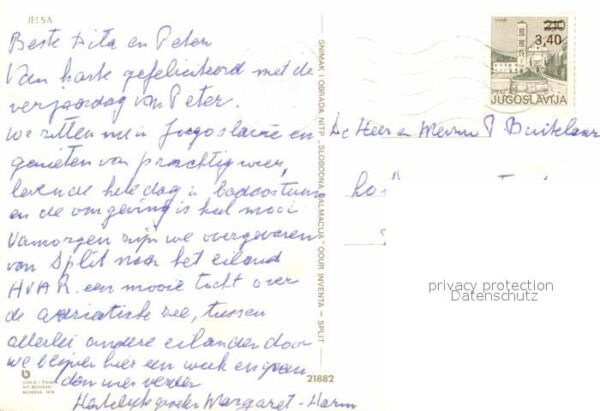 JELSA
Beste Dita en Peter
Van harte gefeliciteerd met de
verjaardag van Peter.
We zitten nu in Jugoslavië en
genieten van prachtig weer,
leven de hele dag in badcostuum
en de omgeving is heel mooi
Vanmorgen zijn we overgevaren
van Split naar het eiland
HVAR. een mooie tocht over
de adriatische zee, tussen
allerlei andere eilanden door
we blijven hier een week en gaan
dan weer verder
Hartelijke groeten Margaret - Harm
SNIMAK I OBRADA NITP „SLOBODNA DALMACIJA" OOUR INVENTA — SPLIT
21882
HVAR
210
3,40
JUGOSLAVIJA
De Heer en Mevrouw P Buitelaar
privacy protection
Datenschutz